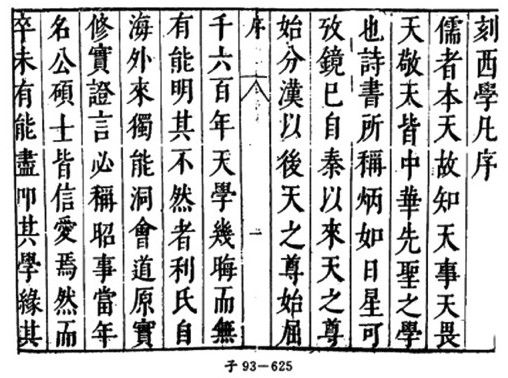 刻西學凡序
儒者本天故知天事天畏
天敬天皆中華先聖之學
也詩書所稱炳如日星可
攷鏡已自秦以來天之尊
始分漢以後天之尊始屈
序 一
千六百年天學幾晦而無
有能明其不然者利氏自
海外來獨能洞會道原實
修實證言必稱昭事當年
名公碩士皆信愛焉然而
卒未有能盡叩其學緣其
子93-625